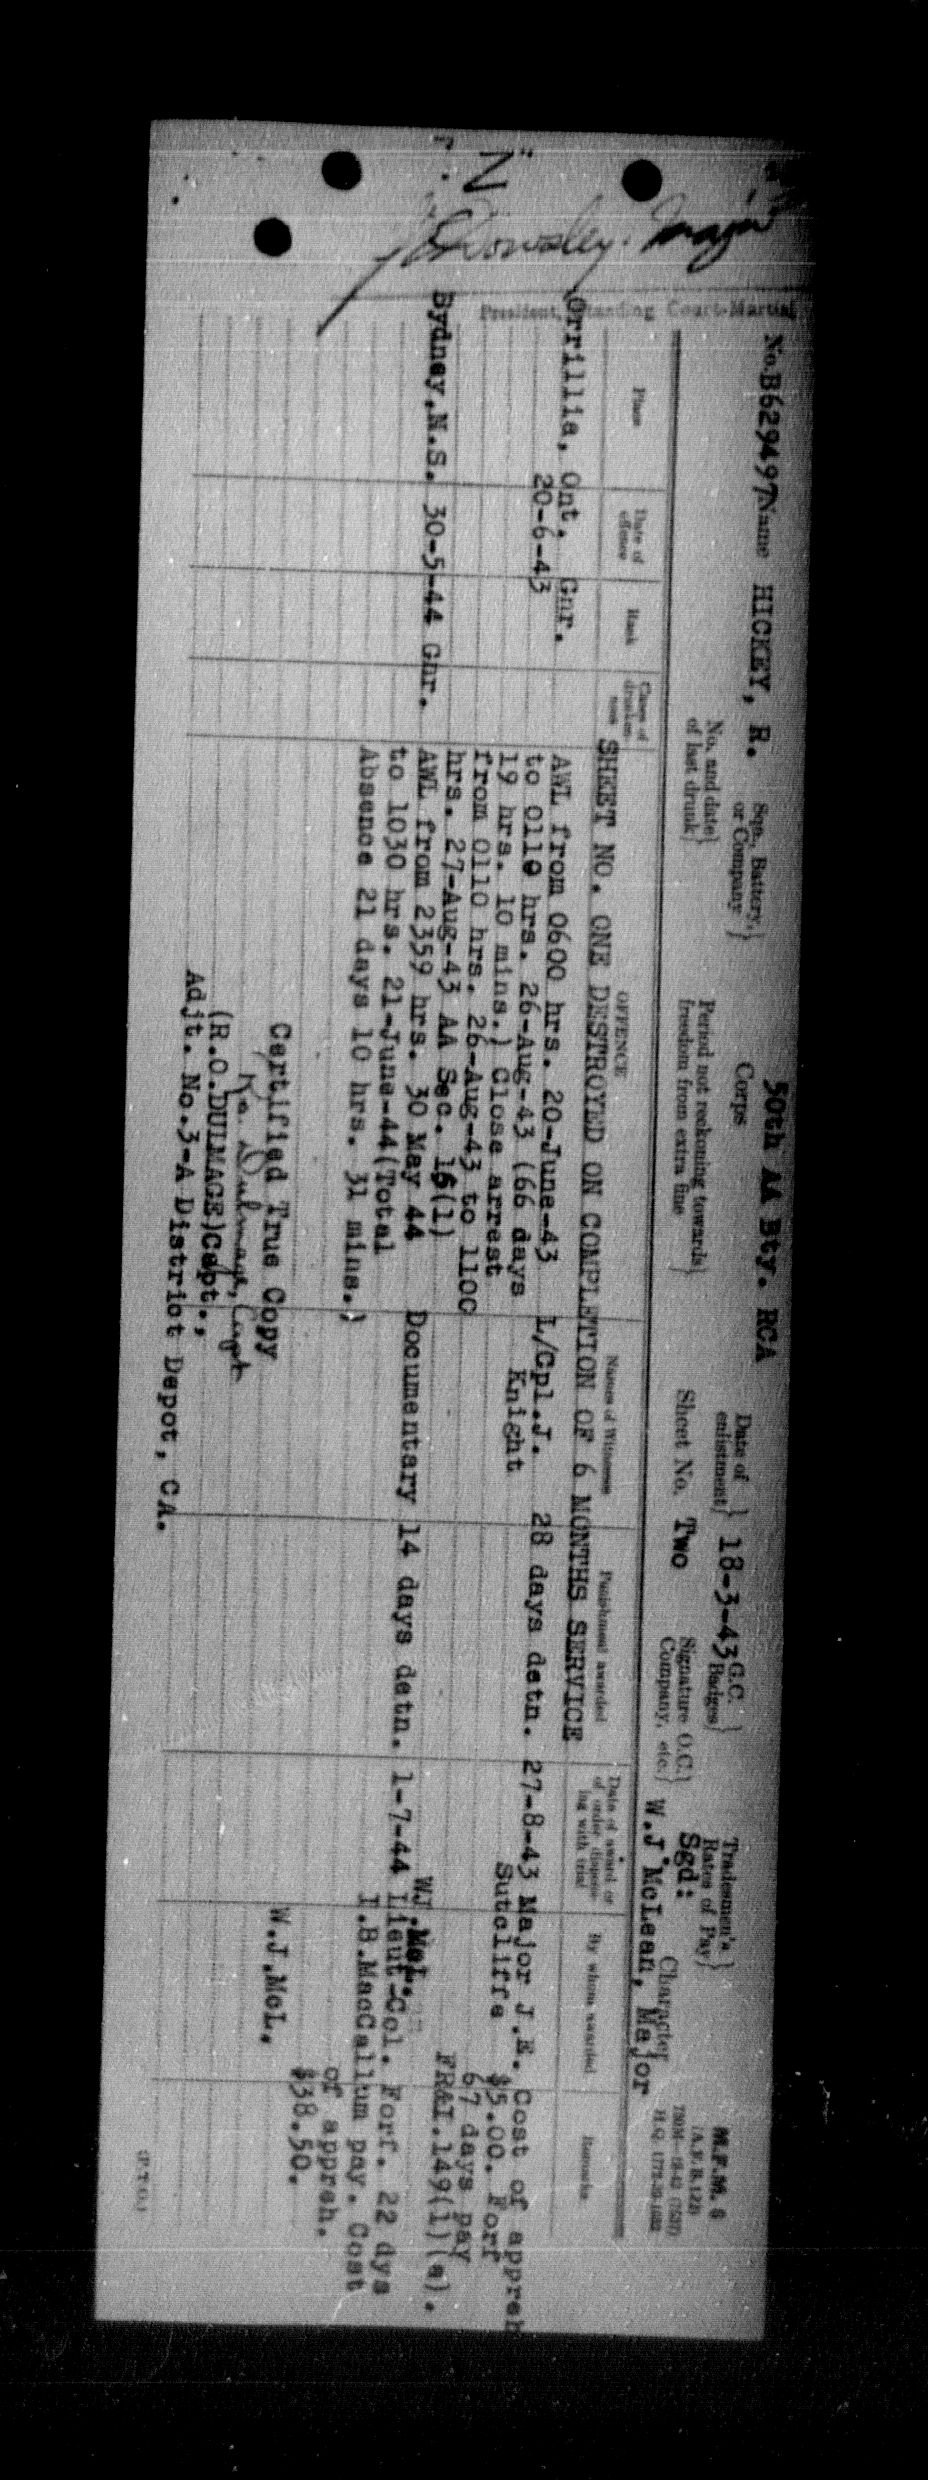 "N"
Dowsley. Major
President, Standing Court-Martial
M.F.M. 6
No. B629497 Name HICKEY, R. Sqn., Battery, or Company} 50th AA Bty. RCA Corps Date of enlistment} 18-3-43 G.C. Badges} Tradesmen's Rates of Pay}
No. and date of last drunk} Period not reckoning towards freedom from extra fine} Sheet No. Two Signature O.C. Company, etc.} Sgd: W.J. McLean, Major Character
Place Date of offence Rank Cases of drunkenness OFFENCE Names of Witnesses Punishment awarded Date of award or of order dispensing with trial By whom awarded Remarks
SHEET NO. ONE DESTROYED ON COMPLETION OF 6 MONTHS SERVICE
Orrillia, Ont. Gnr. AWL from 0600 hrs. 20-June-43 L/Cpl.J. 28 days detn. 27-8-43 Major J.E. Cost of appreh
20-6-43 to 0110 hrs. 26-Aug-43 (66 days Knight Sutcliffe $5.00. Forf
19 hrs. 10 mins.) Close arrest 67 days pay
from 0110 hrs. 26-Aug-43 to 1100 FR&I.149(1)(a).
hrs. 27-Aug-43 AA Sec. 15(1) WJ.McL.
Sydney,N.S. 30-5-44 Gnr. AWL from 2359 hrs. 30 May 44 Documentary 14 days detn. 1-7-44 Lieut-Col. Forf. 22 dys
to 1030 hrs. 21-June-44(Total I.B.MacCallum pay. Cost
Absence 21 days 10 hrs. 31 mins.) of appreh.
$38.50.
W.J.McL.
Certified True Copy
R.O. Dulmage, Capt
(R.O.DULMAGE)Capt.,
Adjt. No.3-A District Depot, CA.
(P.T.O.)